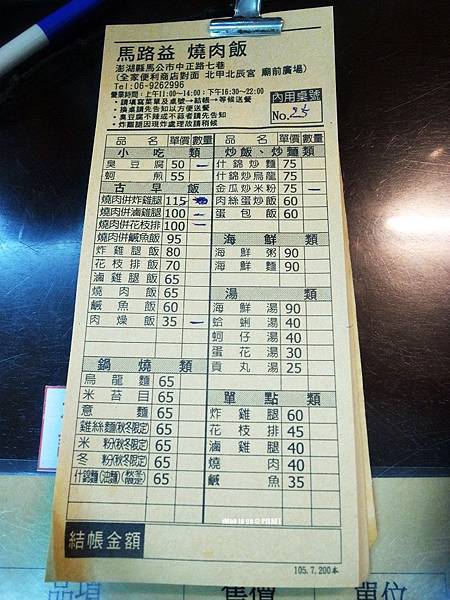 馬路益 燒肉飯
澎湖縣馬公市中正路七巷
(全家便利商店對面 北甲北辰宮 廟前廣場)
Tel:06-9262996
營業時間:上午11:00~14:00;下午16:30~22:00
•請填寫菜單及桌號→結帳→等候送餐
•換桌請先告知以方便送餐
•臭豆腐不辣或不蒜者請先告知
•炸雞腿因現炸處理故請稍候
內用桌號
No. 25
品名 單價 數量
小吃類
臭豆腐 50 一
蚵煎 55
古早飯
燒肉併炸雞腿 115
燒肉併滷雞腿 100 一
燒肉併花枝排 100 一
燒肉併鹹魚飯 95
炸雞腿飯 80
花枝排飯 70
滷雞腿飯 65
燒肉飯 65
鹹魚飯 60
肉燥飯 35 一
鍋燒類
烏龍麵 65
米苔目 65
意麵 65
雞絲麵(秋冬限定) 65
米粉(秋冬限定) 65
冬粉(秋冬限定) 65
什錦麵(油麵) 65
品名 單價 數量
炒飯、炒麵類
什錦炒麵 75
什錦炒烏龍 75
金瓜炒米粉 75 一
肉絲蛋炒飯 60
蛋包飯 60
海鮮類
海鮮粥 90
海鮮麵 90
湯類
海鮮湯 90
蛤蜊湯 40
蚵仔湯 40
蛋花湯 30
貢丸湯 25
單點類
炸雞腿 60
花枝排 45
滷雞腿 40
燒肉 40
鹹魚 35
結帳金額
105.7.200本
品項 售價 單位